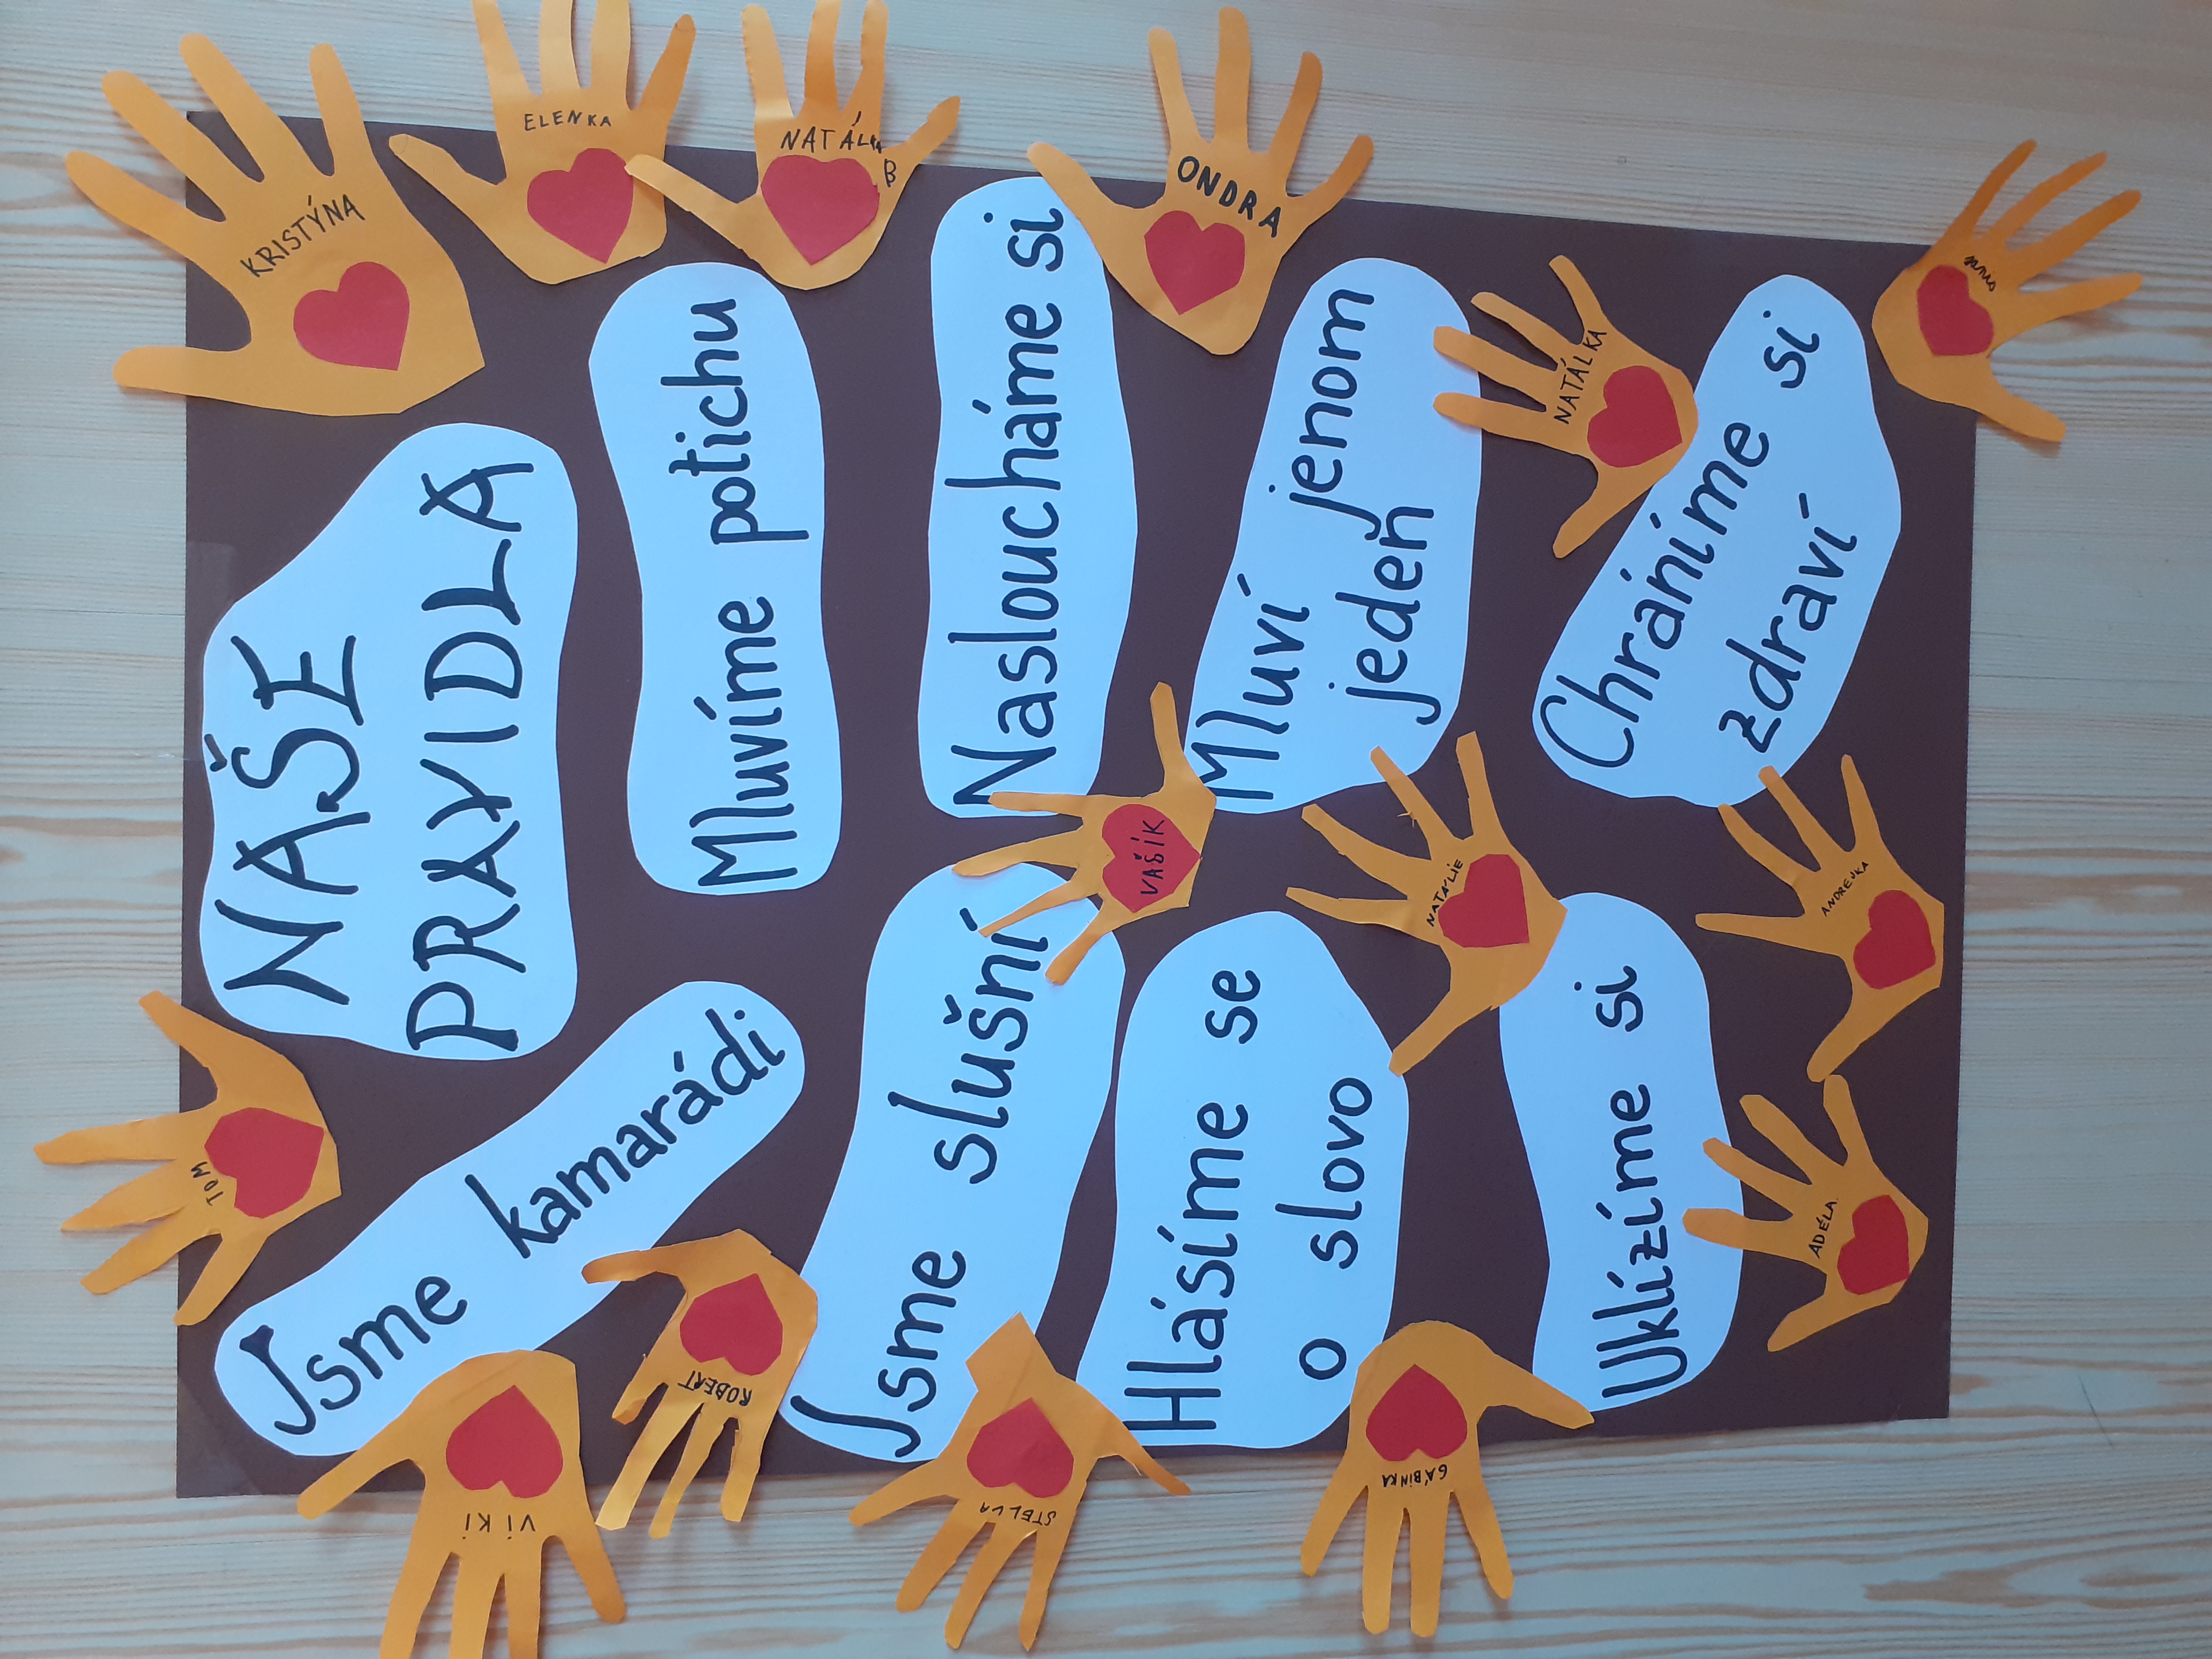 NAŠE
PRAVIDLA
Jsme kamarádi
Mluvíme potichu
Jsme slušní
Nasloucháme si
Hlásíme se
o slovo
Mluví jenom
jeden
Uklízíme si
Chráníme si
zdraví
KRISTÝNA
ELENKA
NATÁLKA
B
ONDRA
NATÁLKA
VAŠÍK
NATÁLIE
ANDREJKA
ADÉLA
TOM
VIKI
ROBERT
STELLA
GÁBINKA